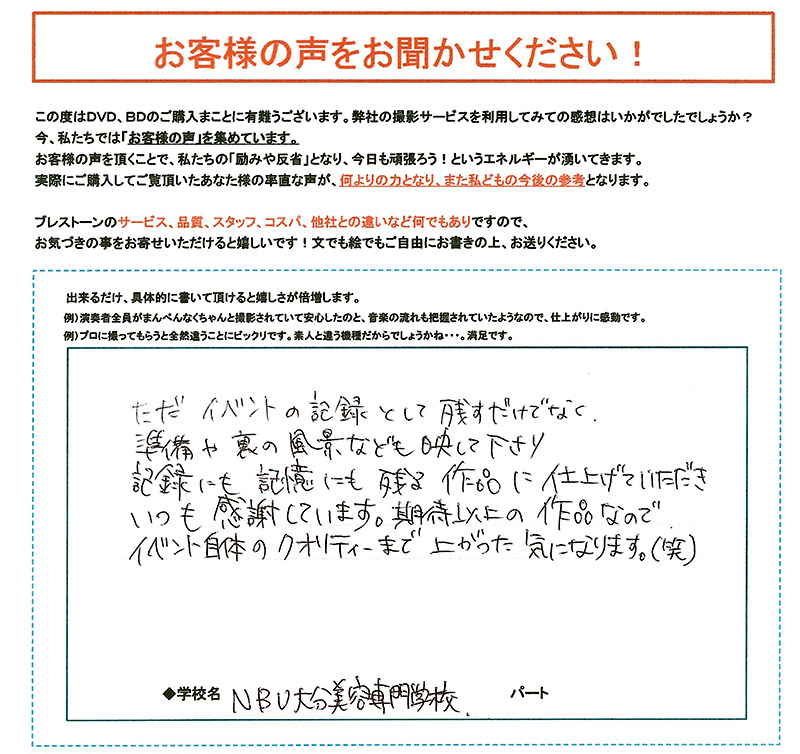 お客様の声をお聞かせください！
この度はDVD、BDのご購入まことに有難うございます。弊社の撮影サービスを利用してみての感想はいかがでしたでしょうか？
今、私たちでは「お客様の声」を集めています。
お客様の声を頂くことで、私たちの「励みや反省」となり、今日も頑張ろう！というエネルギーが湧いてきます。
実際にご購入してご覧頂いたあなた様の率直な声が、何よりの力となり、また私どもの今後の参考となります。
ブレストーンのサービス、品質、スタッフ、コスパ、他社との違いなど何でもありですので、
お気づきの事をお寄せいただけると嬉しいです！文でも絵でもご自由にお書きの上、お送りください。
出来るだけ、具体的に書いて頂けると嬉しさが倍増します。
例）演奏者全員がまんべんなくちゃんと撮影されていて安心したのと、音楽の流れも把握されていたようなので、仕上がりに感動です。
例）プロに撮ってもらうと全然違うことにビックリです。素人と違う機種だからでしょうかね・・・。満足です。
ただ イベントの記録として残すだけでなく、
準備や裏の風景なども映して下さり
記録にも 記憶にも 残る 作品に 仕上げていただき
いつも 感謝しています。期待以上の 作品なので
イベント自体の クオリティーまで 上がった 気になります。(笑)
◆学校名 NBU大分美容専門学校. パート